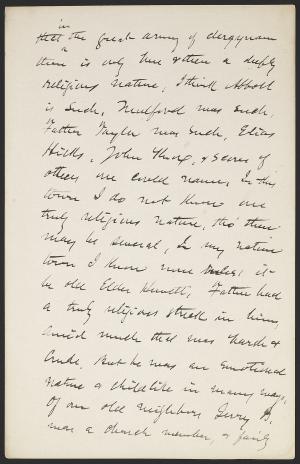 in
the great army of clergymen
there is only here & there a deeply
religious nature, I think Abbott
is such, Mulford was such,
Father Taylor was such, Elias
Hicks, John
& scores of
others one could name. In this
town I do not know one
truly religious nature, tho' there
may be several, In my native
town I know none unless it
be old Elder Hewett, Father had
a truly religious streak in him,
amid much that was harsh &
crude, but he was an emotional
nature & childlike in many ways.
Of our old neighbors Jerry
was a church member, & fairly